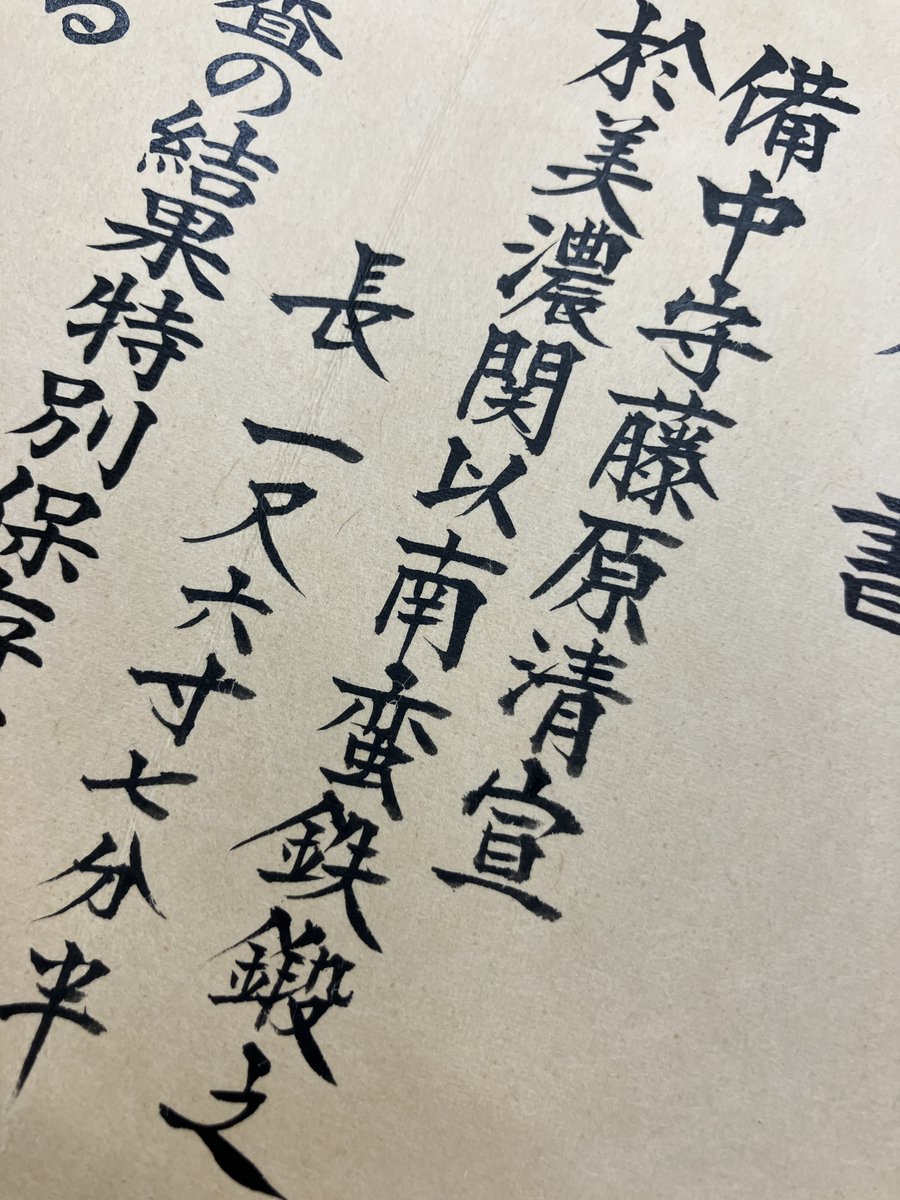 書
備中守藤原清宣
於美濃関以南蛮鉄鍛之
長 一尺六寸七分半
査の結果特別保存
る